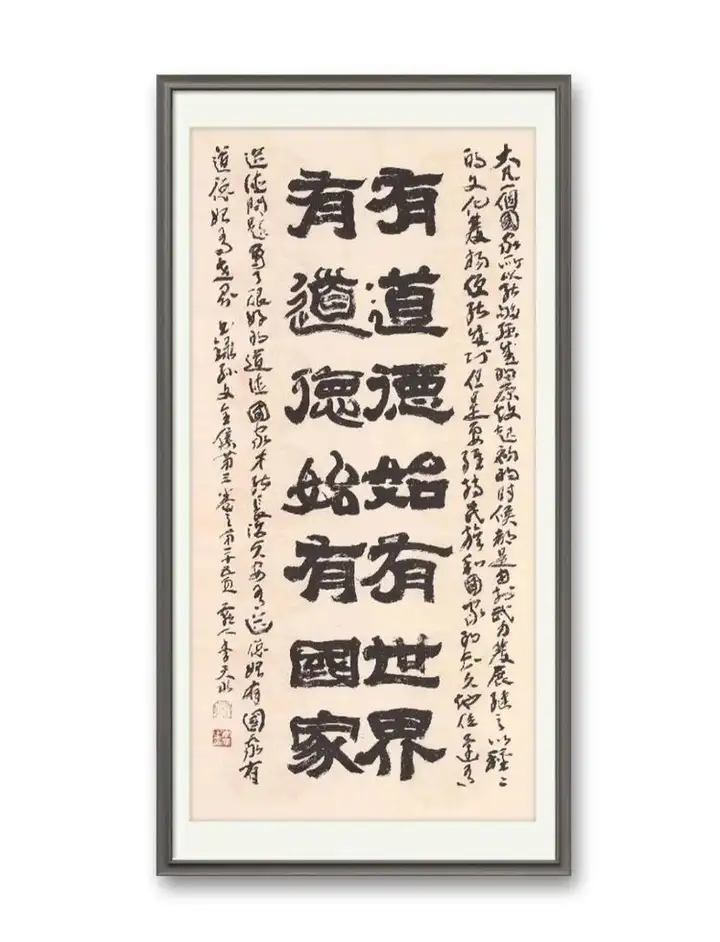 大凡一個國家所以能夠強盛的原故起初的時候都是由於武力發展繼之以種々
的文化發揚便能成功但是要維持民族和國家的長久地位還有
有道德始有世界
有道德始有國家
道德問題有了很好的道德國家才能長治久安有道德始有國家有
道德始有世界 錄孫文全集第三卷之第二十五頁 人李天水